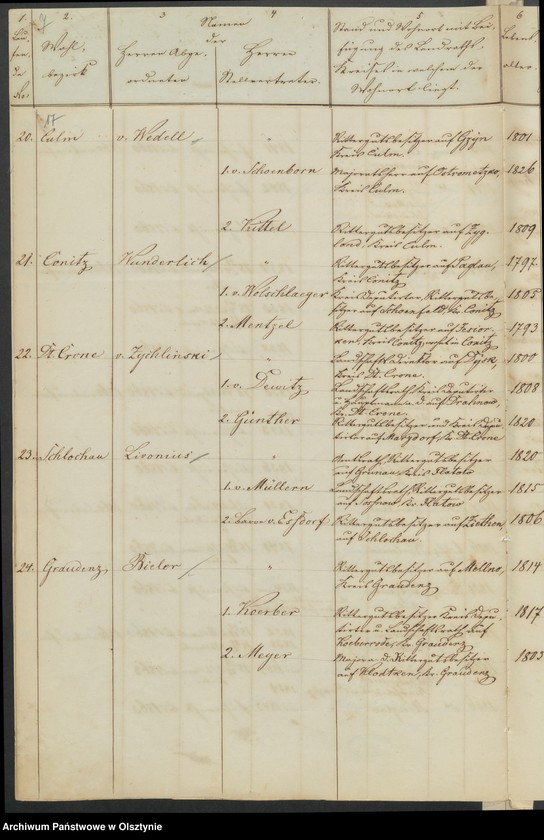 1 2. 3 4 5 6
Laufende No.
Wahlbezirk
Namen
der
Herren Abgeordneten
Herren
Stellvertreter.
Stand und Wohnort mit Beifügung des Landräthl.
Kreises in welchem der
Wohnort liegt.
Lebensalter.
20. Culm v. Wedell " Rittergutsbesitzer auf 1801
Kreis Culm.
1. v. Schoenborn Majoratsherr auf Ostrometzko, 1826
Kreis Culm.
2. Kittel Rittergutsbesitzer auf 1809
Kreis Culm.
21. Conitz Wunderlich " Rittergutsbesitzer auf Paglau, 1797.
Kreis Conitz
1. v. Wolschlaeger Kreisdeputirter, Rittergutsbe- 1805
sitzer auf Schoenfeld, Kr. Conitz
2. Mentzel Rittergutsbesitzer auf 1793
Kreis Conitz, wohnt in Conitz
22. Dt. Crone v. Zychlinski " Landschaftsdirektor auf 1800
Kreis Dt. Crone.
1. v. Dewitz Landschaftsrath, Kreisdeputirter 1808
u. Hauptmann a. D. auf
Kr. Dt. Crone.
2. Günther Rittergutsbesitzer und Kreisdepu 1820
tirter auf Marzdorf, Kr. Dt. Crone
23. Schlochau Livonius " Rittergutsbesitzer 1820
auf Grunau, Kreis Flatow
1. v. Müllern Landschaftsrath, Rittergutsbesitzer 1815
auf Sossnow Kr. Flatow
2. Baron v. Eszdorf Rittergutsbesitzer auf Ziethen, 1806
auf Schlochau.
24. Graudenz Bieler " Rittergutsbesitzer auf Mellno, 1814
Kreis Graudenz
1. Koerber Rittergutsbesitzer Kreisdepu 1817
tirter u. Landschaftsrath auf
Koerberrode, Kr. Graudenz
2. Meyer Major a. D. Rittergutsbesitzer 1803
auf Klodtken, Kr. Graudenz
Archiwum Państwowe w Olsztynie